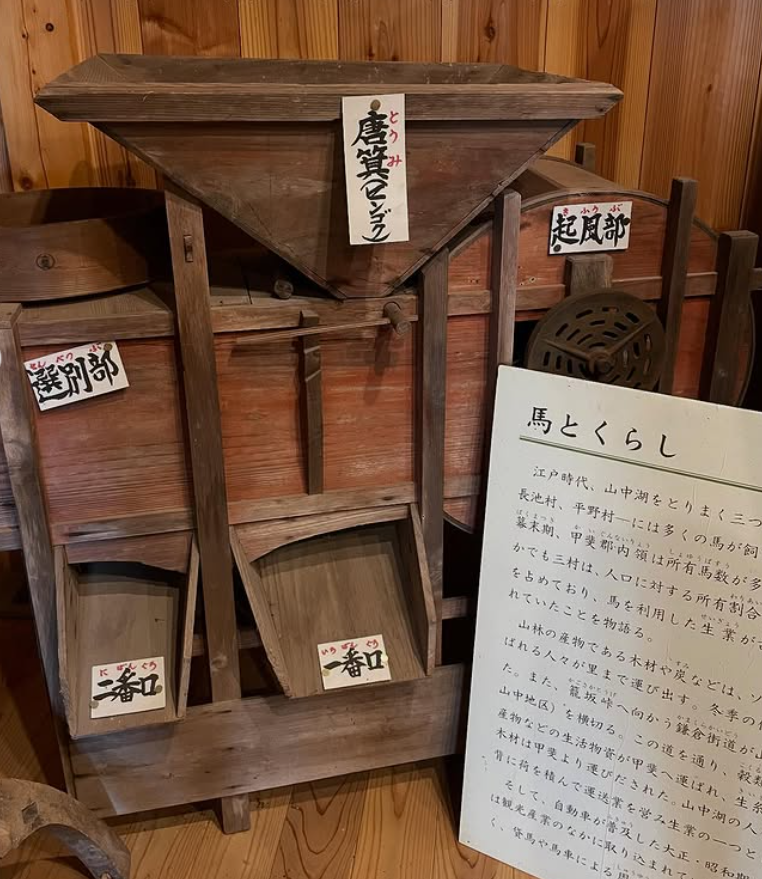 唐箕(ロンゴク)
とうみ
起風部
きふうぶ
選別部
せんべつぶ
二番口
にばんぐち
一番口
いちばんぐち
馬とくらし
江戸時代、山中湖をとりまく三つ
長池村、平野村―には多くの馬が飼
幕末期、甲斐郡内領は所有馬数が多
かでも三村は、人口に対する所有割合
を占めており、馬を利用した生業が
れていたことを物語る。
山林の産物である木材や炭などは、
ばれる人々が里まで運び出す。冬季の
た。また、籠坂峠へ向かう鎌倉街道が
山中地区)を横切る。この道を通り、穀類
産物などの生活物資が甲斐へ運ばれ、生糸
木材は甲斐より運びだされた。山中湖の人
背に荷を積んで運送業を営み生業の一つと
そして、自動車が普及した大正・昭和期
は観光産業のなかに取り込まれて
く、貸馬や馬車による